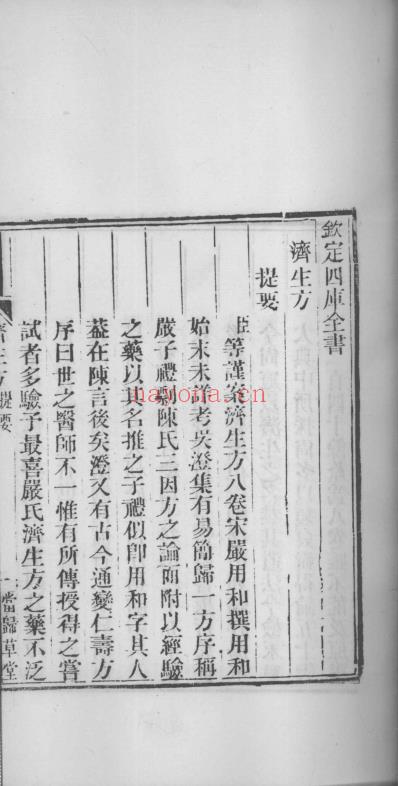 欽定四庫全書
濟生方
提要
臣等謹案濟生方八卷宋嚴用和撰用和
始末未詳考吳澄集有易簡歸一方序稱
嚴子禮剟陳氏三因方之論而附以經驗
之藥以其名推之子禮似卽用和字其人
葢在陳言後矣澄又有古今通變仁壽方
序曰世之醫師不一惟有所傳授得之嘗
試者多驗予最喜嚴氏濟生方之藥不泛
濟生方 提要
一 當歸草堂
nayona.cn